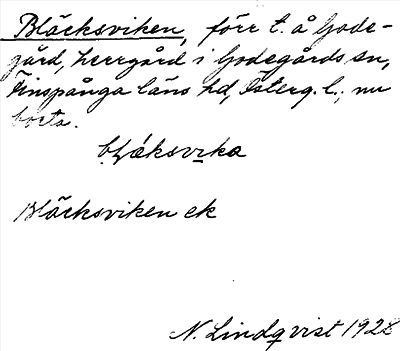 Bläcksviken, förr t. å Gode-
gård, herrgård i Godegårds sn,
Finspånga läns hd, Österg. l.; nu
borta.
Bläcksviken ek
N. Lindqvist 1928